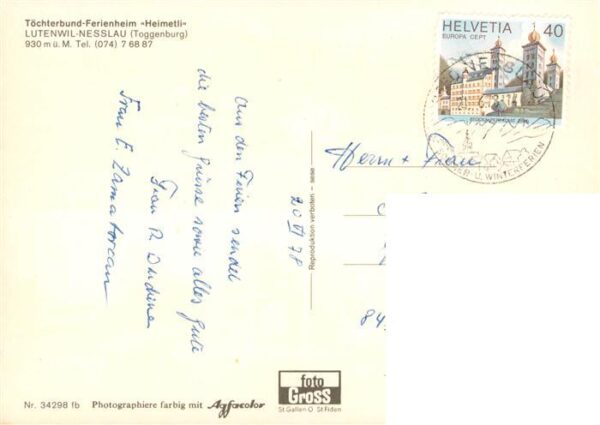 Töchterbund-Ferienheim «Heimetli»
LUTENWIL-NESSLAU (Toggenburg)
930 m ü. M. Tel. (074) 7 68 87
HELVETIA 40
EUROPA CEPT
NESSLAU
SOMMER- U. WINTERFERIEN
Aus den Ferien sendet
die besten Grüsse sowie alles Gute
Frau R.
Frau E.
20 VI 78
Reproduktion verboten – sese
Herrn + Frau
84
foto
Gross
St. Gallen-O St. Fiden
Nr. 34298 fb Photographiere farbig mit Agfacolor